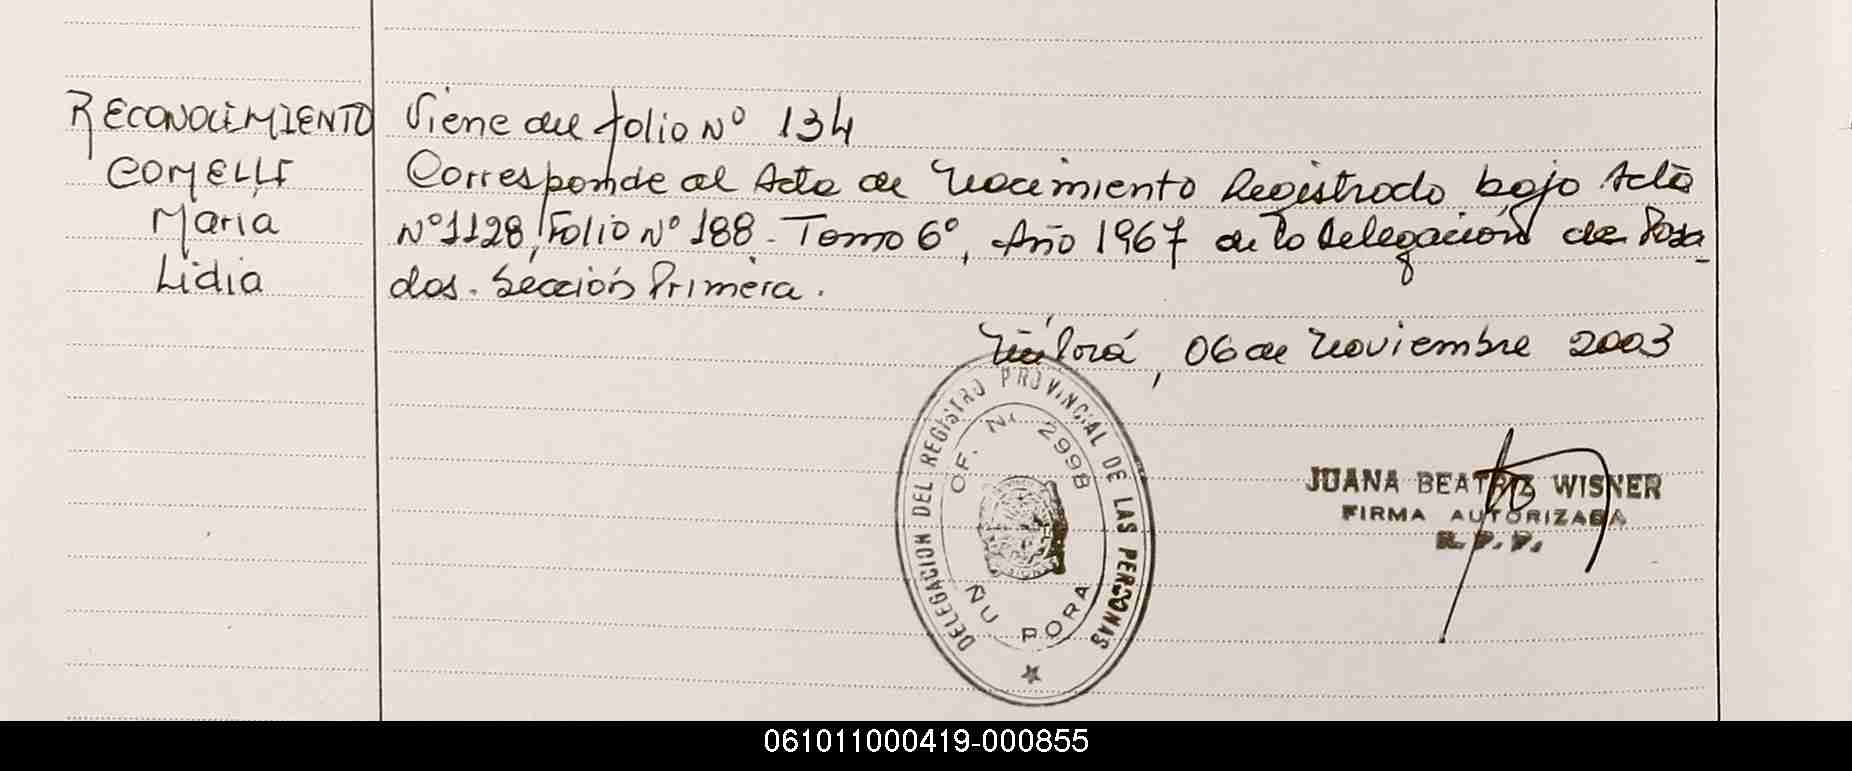 RECONOCIMIENTO
COMELLI
Maria
Lidia
Viene del folio Nº 134
Corresponde al Acta de Nacimiento Registrado bajo Acta
Nº 1128, Folio Nº 188. Tomo 6º, Año 1967 de la Delegación de Posa
das. Sección Primera.
Ñu Porá, 06 de Noviembre 2003
DELEGACION DEL REGISTRO PROVINCIAL DE LAS PERSONAS
OF. Nº 2998
ÑU PORA
JUANA BEATRIZ WISNER
FIRMA AUTORIZADA
R. P. P.
061011000419-000855